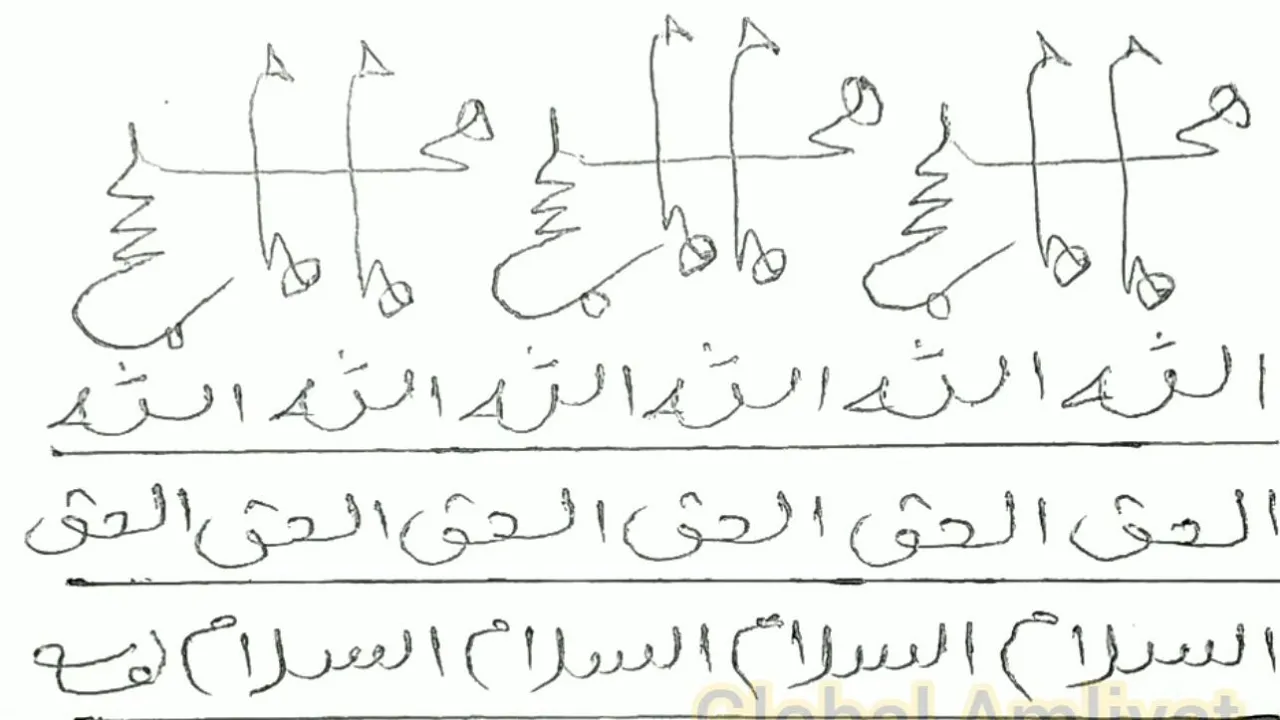 الله الله الله الله الله الله
الحق الحق الحق الحق الحق الحق
السلام السلام السلام السلام
Global Amliyat